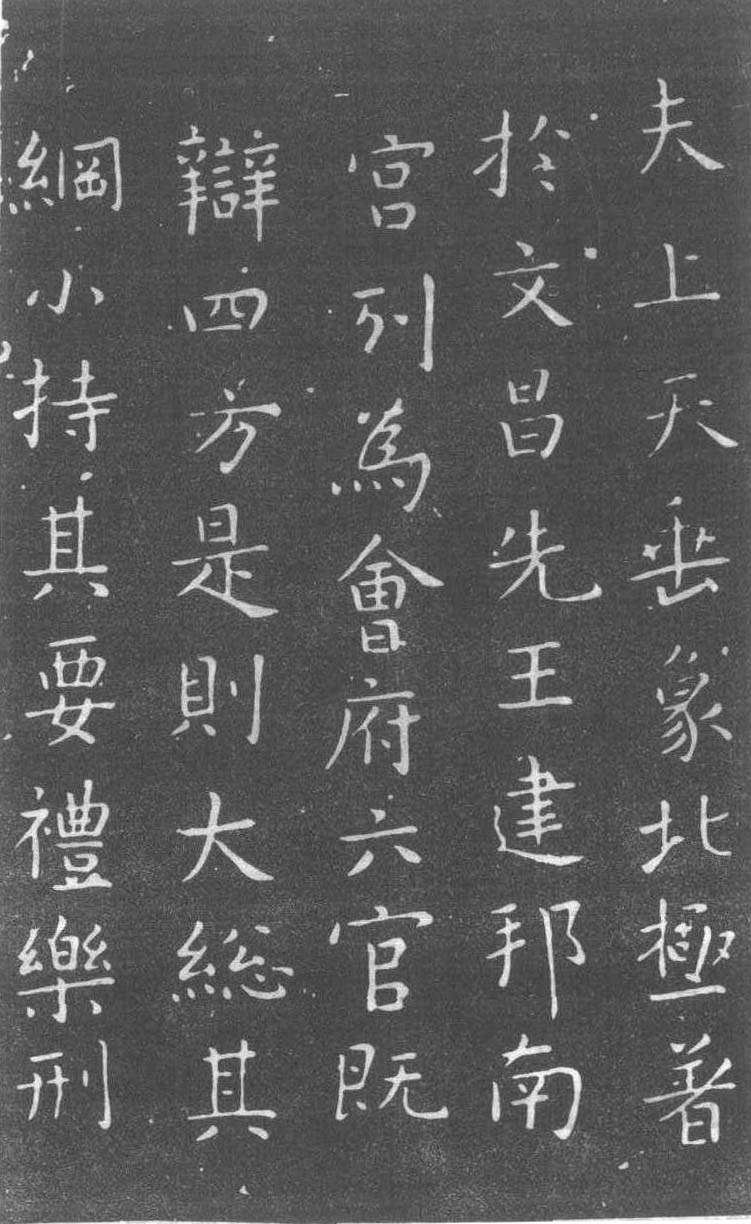 夫上天垂象北極著
於文昌先王建邦南
宮列為會府六官既
辯四方是則大總其
綱小持其要禮樂刑